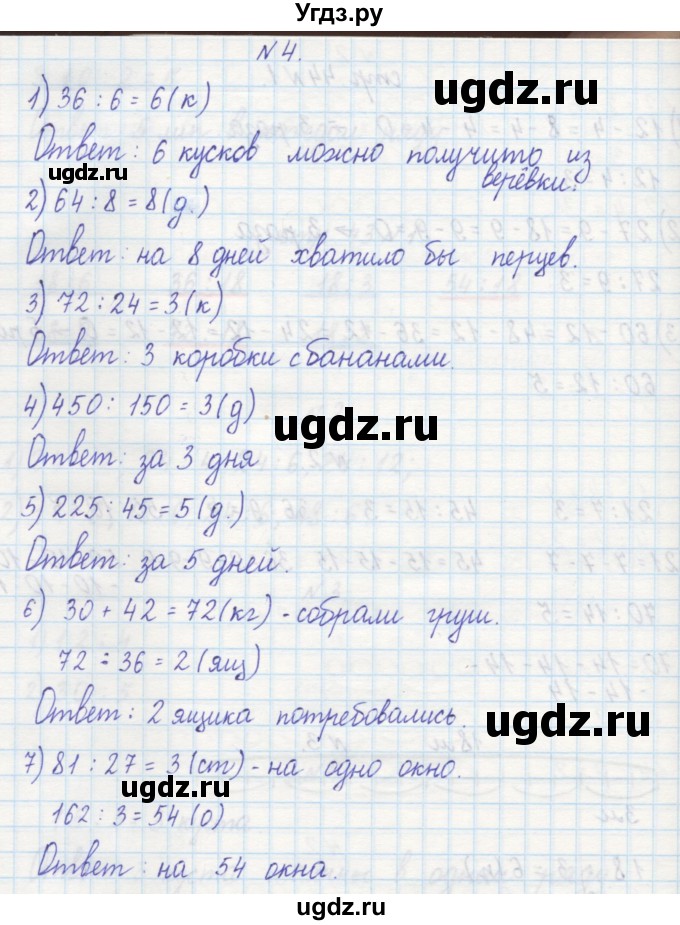 Угдз.ру
N 4.
ugdz.ru
1) 36 : 6 = 6 (к)
Ответ : 6 кусков можно получить из верёвки.
2) 64 : 8 = 8 (д.)
Ответ: на 8 дней хватило бы перцев.
3) 72 : 24 = 3 (к)
Ответ: 3 коробки с бананами.
4) 450 : 150 = 3 (д)
ugdz.ru
Ответ: за 3 дня
5) 225 : 45 = 5 (д.)
Ответ: за 5 дней.
6) 30 + 42 = 72 (кг) - собрали груш.
72 : 36 = 2 (ящ)
Ответ: 2 ящика потребовались.
ugdz.ru
7) 81 : 27 = 3 (ст) - на одно окно.
ugdz.ru
162 : 3 = 54 (о)
Ответ: на 54 окна.
ugdz.ru